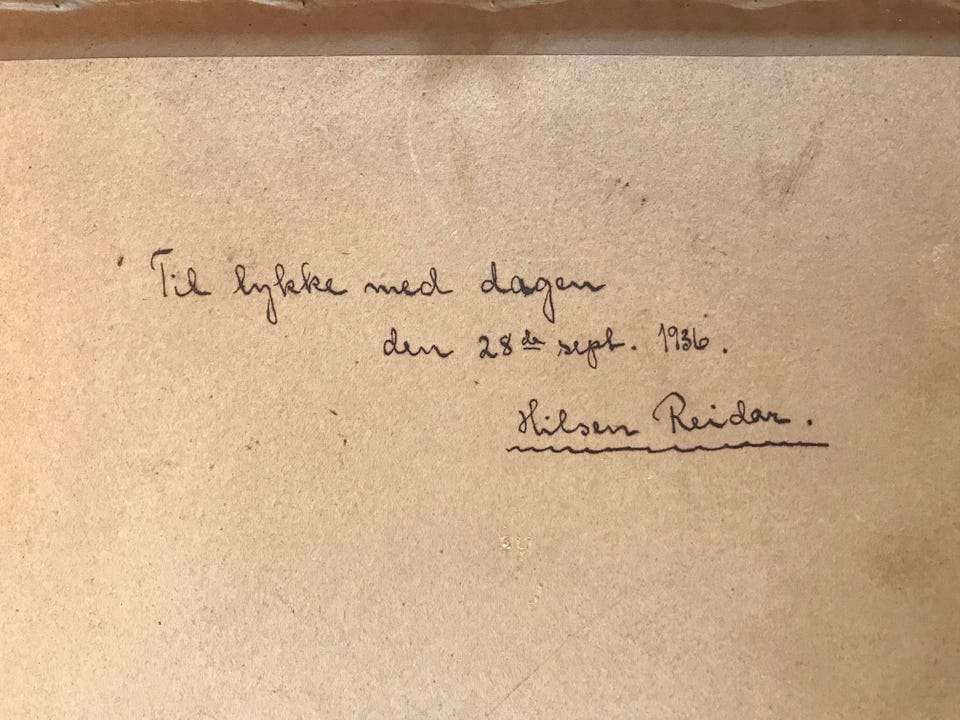 Til lykke med dagen
den 28de sept. 1936.
Hilsen Reidar.